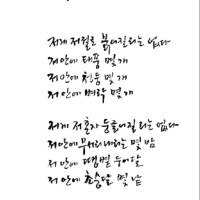 저게 저절로 붉어질 리는 없다
저 안에 태풍 몇 개
저 안에 천둥 몇 개
저 안에 벼락 몇 개
저게 저 혼자 둥글어질 리는 없다
저 안에 무서리 내리는 몇 밤
저 안에 땡볕 두어 달
저 안에 초승달 몇